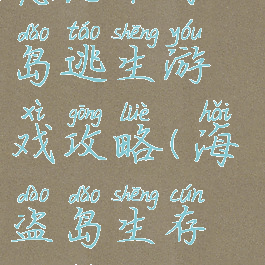 dǎo táo shēng yóu
岛逃生游
xì gōng lüè hǎi
戏攻略(海
dào dǎo shēng cún
盗岛生存